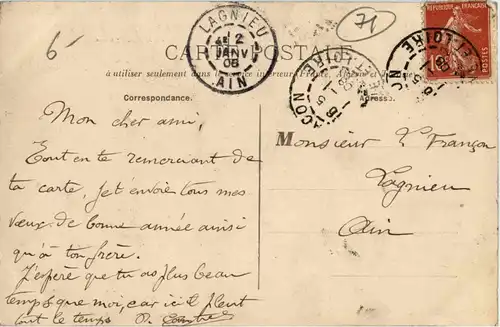 6
71
LAGNIEU
2
JANV
08
AIN
CARTE POSTALE
à utiliser seulement dans le service intérieur (France, Algérie et
MACON
SAONE-ET-LOIRE
REPUBLIQUE FRANÇAISE
POSTES
Correspondance.
Adresse.
Mon cher ami,
Tout en te remerciant de
ta carte, je t'envoie tous mes
vœux de bonne année ainsi
qu'à ton frère.
J'espère que tu as plus beau
temps que moi, car ici il pleut
tout le temps P.
Monsieur L. Françon
Lagnieu
Ain